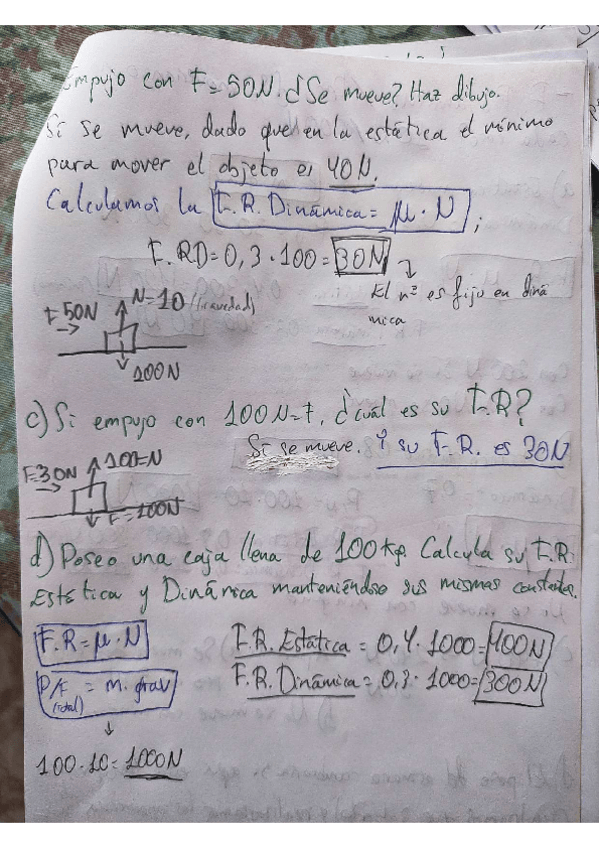 Empujo con F=50N. ¿Se mueve? Haz dibujo.
Sí se mueve, dado que en la estática el mínimo
para mover el objeto es 40N.
Calculamos la F.R. Dinámica = μ · N ;
F.RD=0,3·100=30N
El nº es fijo en diná
mica
F 50N
N=10 (gravedad)
100N
c) Si empujo con 100N=F, ¿cuál es su F.R?
Sí se mueve. Y su F.R. es 30N
F=30N
100=N
F=100N
d) Poseo una caja llena de 100Kg. Calcula su F.R.
Estática y Dinámica manteniéndose sus mismas constantes.
F.R=μ·N
F.R. Estática = 0,4·1000=400N
P/F (total) = m.grav
F.R. Dinámica = 0,3·1000=300N
100·10=1000N